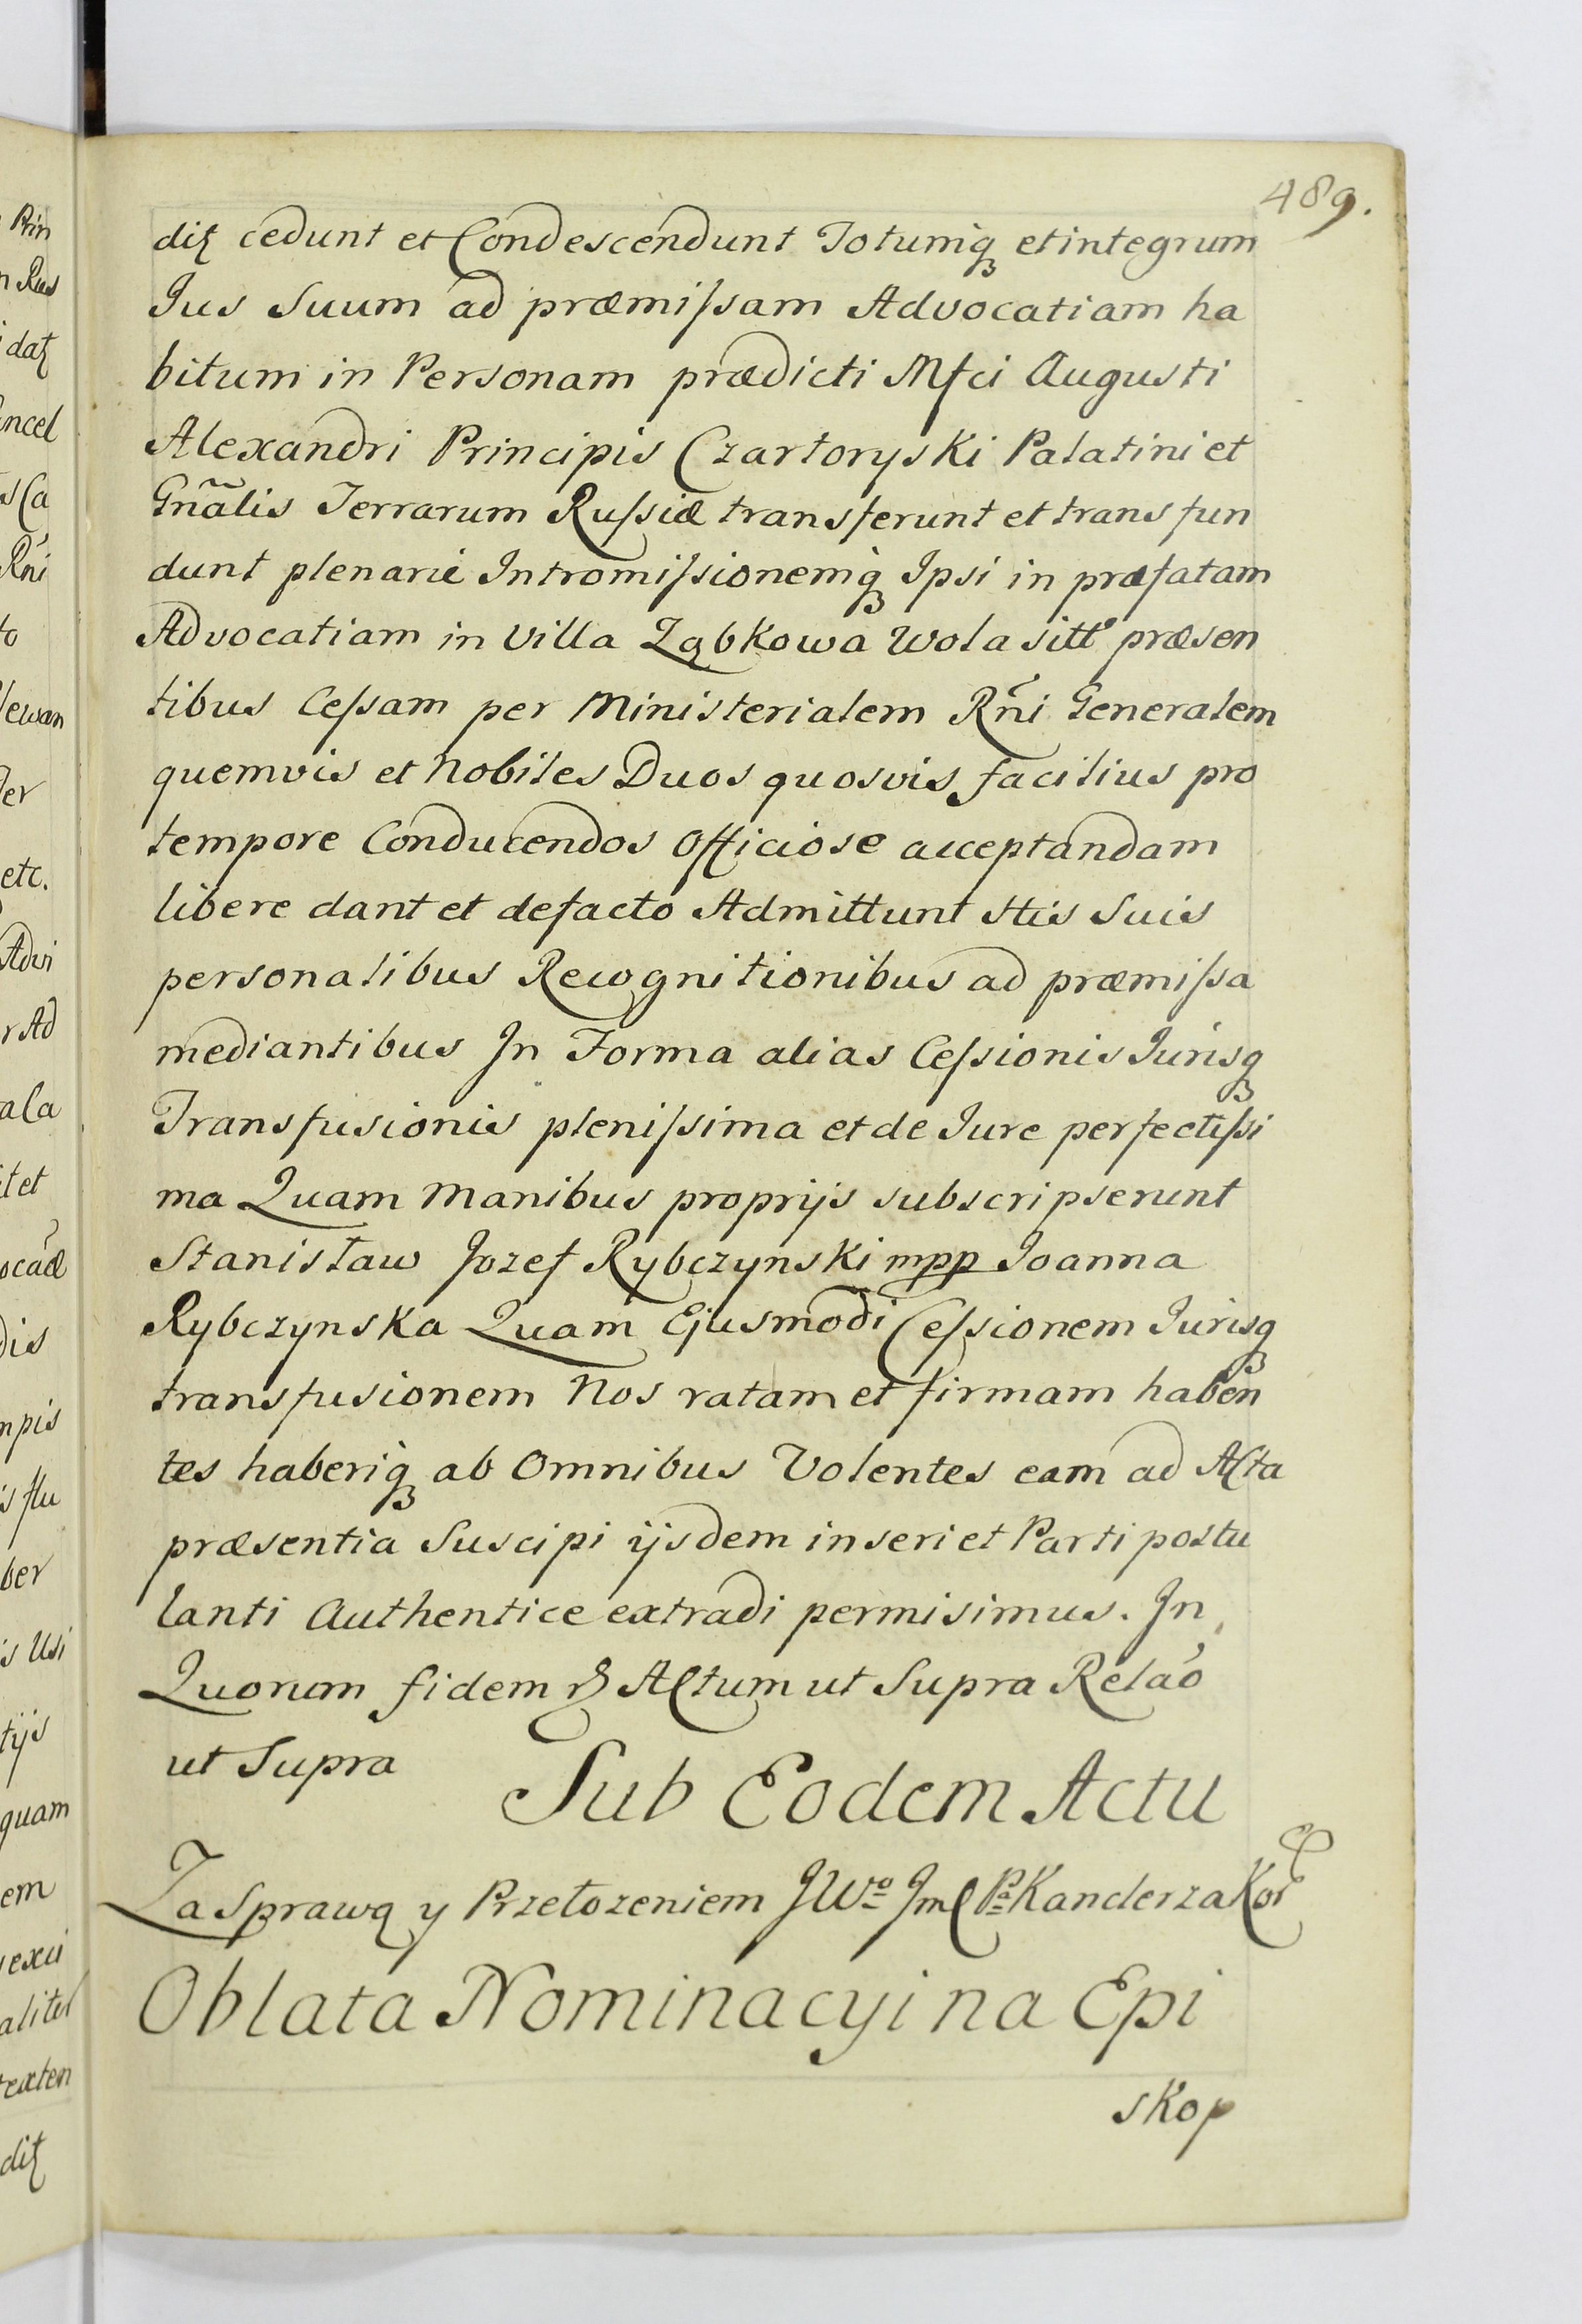 489.
diţ cedunt et Condescendunt Totumq̨ et integrum
Jus Suum ad præmiſsam Advocatiam ha
bitum in Personam prædicti Mfci Augusti
Alexandri Principis Czartoryski Palatini et
Gnãlis Terrarum Ruſsiæ transferunt et transfun
dunt plenarie Intromiſsionemq̨ Ipsi in præfatam
Advocatiam in Villa Ząbkowa Wola sittᵒ præsen
tibus Ceſsam per Ministerialem Rñi Generalem
quemvis et Nobiles Duos quosvis facilius pro
tempore Conducendos Officiose acceptandam
libere dant et defacto Admittunt Stis Suis
personalibus Recognitionibus ad præmiſsa
mediantibus In Forma alias Ceſsionis Jurisq̨
Transfusionis pleniſsima et de Jure perfectiſsi
ma Quam Manibus proprijs subscripserunt
Stanisław Jozef Rybczynski mpp Joanna
Rybczynska Quam Ejusmodi Ceſsionem Jurisq̨
transfusionem Nos ratam et firmam haben
tes haberiq̨ ab Omnibus Volentes eam ad Acta
præsentia Suscipi ijsdem inseri et Parti postu
lanti Authentice extradi permisimus. In
Quorum fidem & Actum ut Supra Relaõ
ut Supra
Sub Eodem Actu
Za Sprawą y Przełozeniem JWᵒ JmC Pᵃ Kanclerza Kor
Oblata Nominacyi na Epi
skop